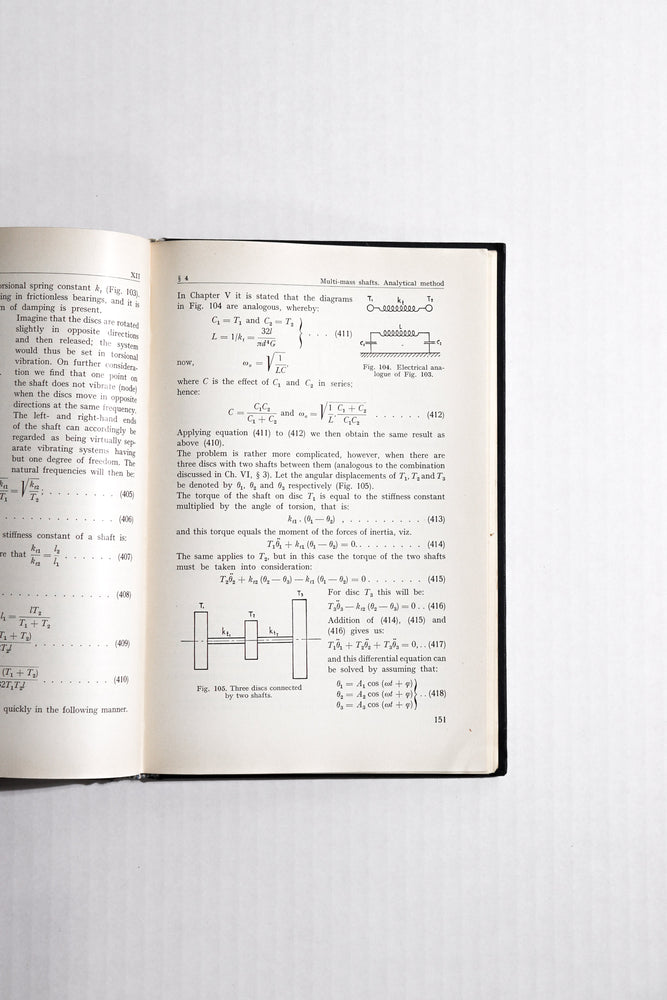 XII
orsional spring constant kt (Fig. 103).
ing in frictionless bearings, and it is
n of damping is present.
Imagine that the discs are rotated
slightly in opposite directions
and then released; the system
would thus be set in torsional
vibration. On further considera-
tion we find that one point on
the shaft does not vibrate (node)
when the discs move in opposite
directions at the same frequency.
The left- and right-hand ends
of the shaft can accordingly be
regarded as being virtually sep-
arate vibrating systems having
but one degree of freedom. The
natural frequencies will then be:
kt1/T1 = √(kt2/T2); . . . . . . . . (405)
. . . . . . . . . . . . . . (406)
stiffness constant of a shaft is:
re that kt1/kt2 = l2/l1 . . . . . . (407)
. . . . . . . . . . . . . . (408)
l1 = lT2/(T1 + T2)
T1 + T2)/T2l . . . . . . . . . (409)
(T1 + T2)/32T1T2l . . . . . . . . (410)
quickly in the following manner.
§ 4 Multi-mass shafts. Analytical method
In Chapter V it is stated that the diagrams
in Fig. 104 are analogous, whereby:
C1 = T1 and C2 = T2
L = 1/kt = 32l/πd⁴G } . . . (411)
now, ωn = √(1/LC)
T1 kt T2
L
C1 C2
Fig. 104. Electrical ana-
logue of Fig. 103.
where C is the effect of C1 and C2 in series;
hence:
C = C1C2/(C1 + C2) and ωn = √(1/L · (C1 + C2)/C1C2) . . . . . . (412)
Applying equation (411) to (412) we then obtain the same result as
above (410).
The problem is rather more complicated, however, when there are
three discs with two shafts between them (analogous to the combination
discussed in Ch. VI, § 3). Let the angular displacements of T1, T2 and T3
be denoted by θ1, θ2 and θ3 respectively (Fig. 105).
The torque of the shaft on disc T1 is equal to the stiffness constant
multiplied by the angle of torsion, that is:
kt1 . (θ1 — θ2) . . . . . . . . . (413)
and this torque equals the moment of the forces of inertia, viz.
T1θ̈1 + kt1 (θ1 — θ2) = 0. . . . . . . . . (414)
The same applies to T2, but in this case the torque of the two shafts
must be taken into consideration:
T2θ̈2 + kt2 (θ2 — θ3) — kt1 (θ1 — θ2) = 0 . . . . . . . (415)
T1 T2 T3
kt1 kt2
Fig. 105. Three discs connected
by two shafts.
For disc T3 this will be:
T3θ̈3 — kt2 (θ2 — θ3) = 0 . . (416)
Addition of (414), (415) and
(416) gives us:
T1θ̈1 + T2θ̈2 + T3θ̈3 = 0, . . (417)
and this differential equation can
be solved by assuming that:
θ1 = A1 cos (ωt + φ)
θ2 = A2 cos (ωt + φ) } . . (418)
θ3 = A3 cos (ωt + φ)
151